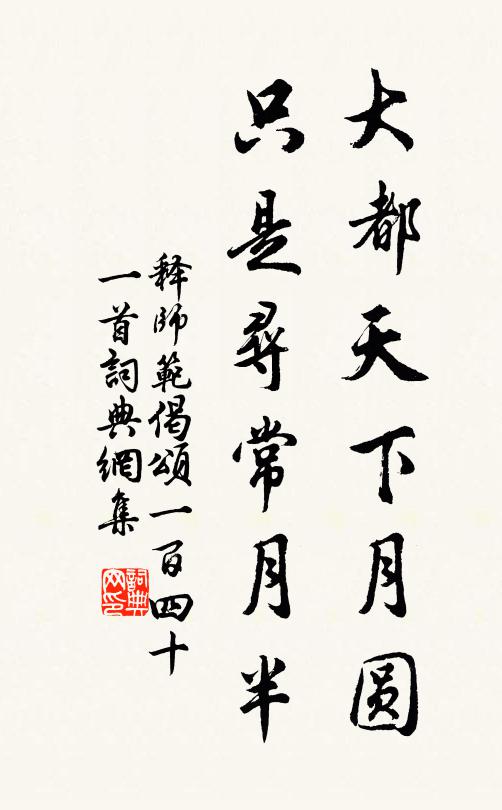 大都天下月圆
只是尋常月半
释師範偈頌一百四十
一首詞典網集
詞典网印